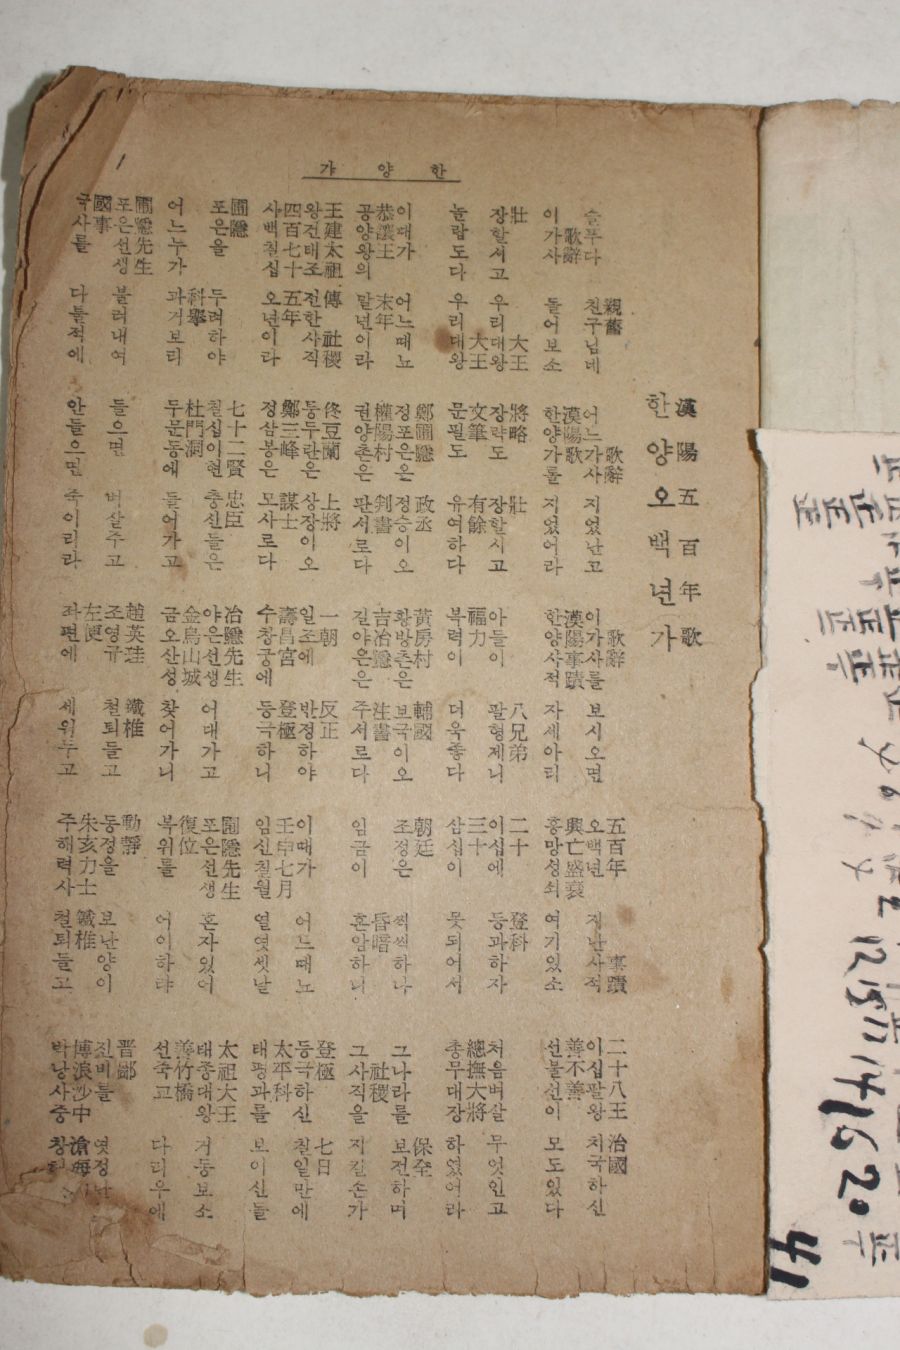 한양가
漢陽五百年歌
한양오백년가
親舊 歌辭 歌辭 五百年 事蹟 二十八王 治國
슬푸다 친구님네 어느가사 지었난고 이가사를 보시오면 오백년 지난사적 이십팔왕 치국하신
歌辭 漢陽歌 漢陽事蹟 興亡盛衰 善不善
이가사 들어보소 한양가를 지었어라 한양사적 자세아리 흥망성쇠 여기있소 선불선이 모도있다
壯 大王 將略 壯 八兄弟 二十 登科
장할서고 우리대왕 장략도 장할시고 아들이 팔형제니 이십에 등과하자 처음벼살 무엇인고
大王 文筆 有餘 福力 三十 總撫大將
놀랍도다 우리대왕 문필도 유여하다 복력이 더욱좋다 삼십이 못되어서 총무대장 하였어라
鄭圃隱 政丞 黃房村 輔國 朝廷 保全
이때가 어느때뇨 정포은은 정승이오 황방촌은 보국이오 조정은 씩씩하나 그나라를 보전하며
恭讓王 末年 權陽村 判書 吉冶隱 注書 昏暗 社稷
공양왕의 말년이라 권양촌은 판서로다 길야은은 주서르다 임금이 혼암하니 그사직을 지킬손가
王建太祖 傳 社稷 佟豆蘭 上將 一朝 反正 登極 七日
왕건태조 전한사직 퉁두란은 상장이오 일조에 반정하야 이때가 어느때뇨 등극하신 칠일만에
四百七十 五年 鄭三峰 謀士 壽昌宮 登極 壬申七月 太平科
사백칠십 오년이라 정삼봉은 모사르다 수창궁에 등극하니 임신칠월 열엿셋날 태평과를 보이신들
圃隱 七十二賢 忠臣 冶隱先生 圃隱先生 太祖大王
포은을 두려하야 칠십이현 충신들은 야은선생 어대가고 포은선생 혼자있어 태종대왕 거동보소
科擧 杜門洞 金烏山城 復位 善竹橋
어느누가 과거보리 두문동에 들어가고 금오산성 찾어가니 복위를 어이하랴 선죽고 다리우에
圃隱先生 趙英珪 鐵椎 動靜 晋鄙
포은선생 불러내여 들으면 벼살주고 조영규 철퇴들고 동정을 보난양이 진비를
國事 左便 朱亥力士 鐵椎 博浪沙中 滄海
국사를 다툴적에 안들으면 죽이리라 좌편에 세워두고 주해력사 철퇴들고 박낭사중
41